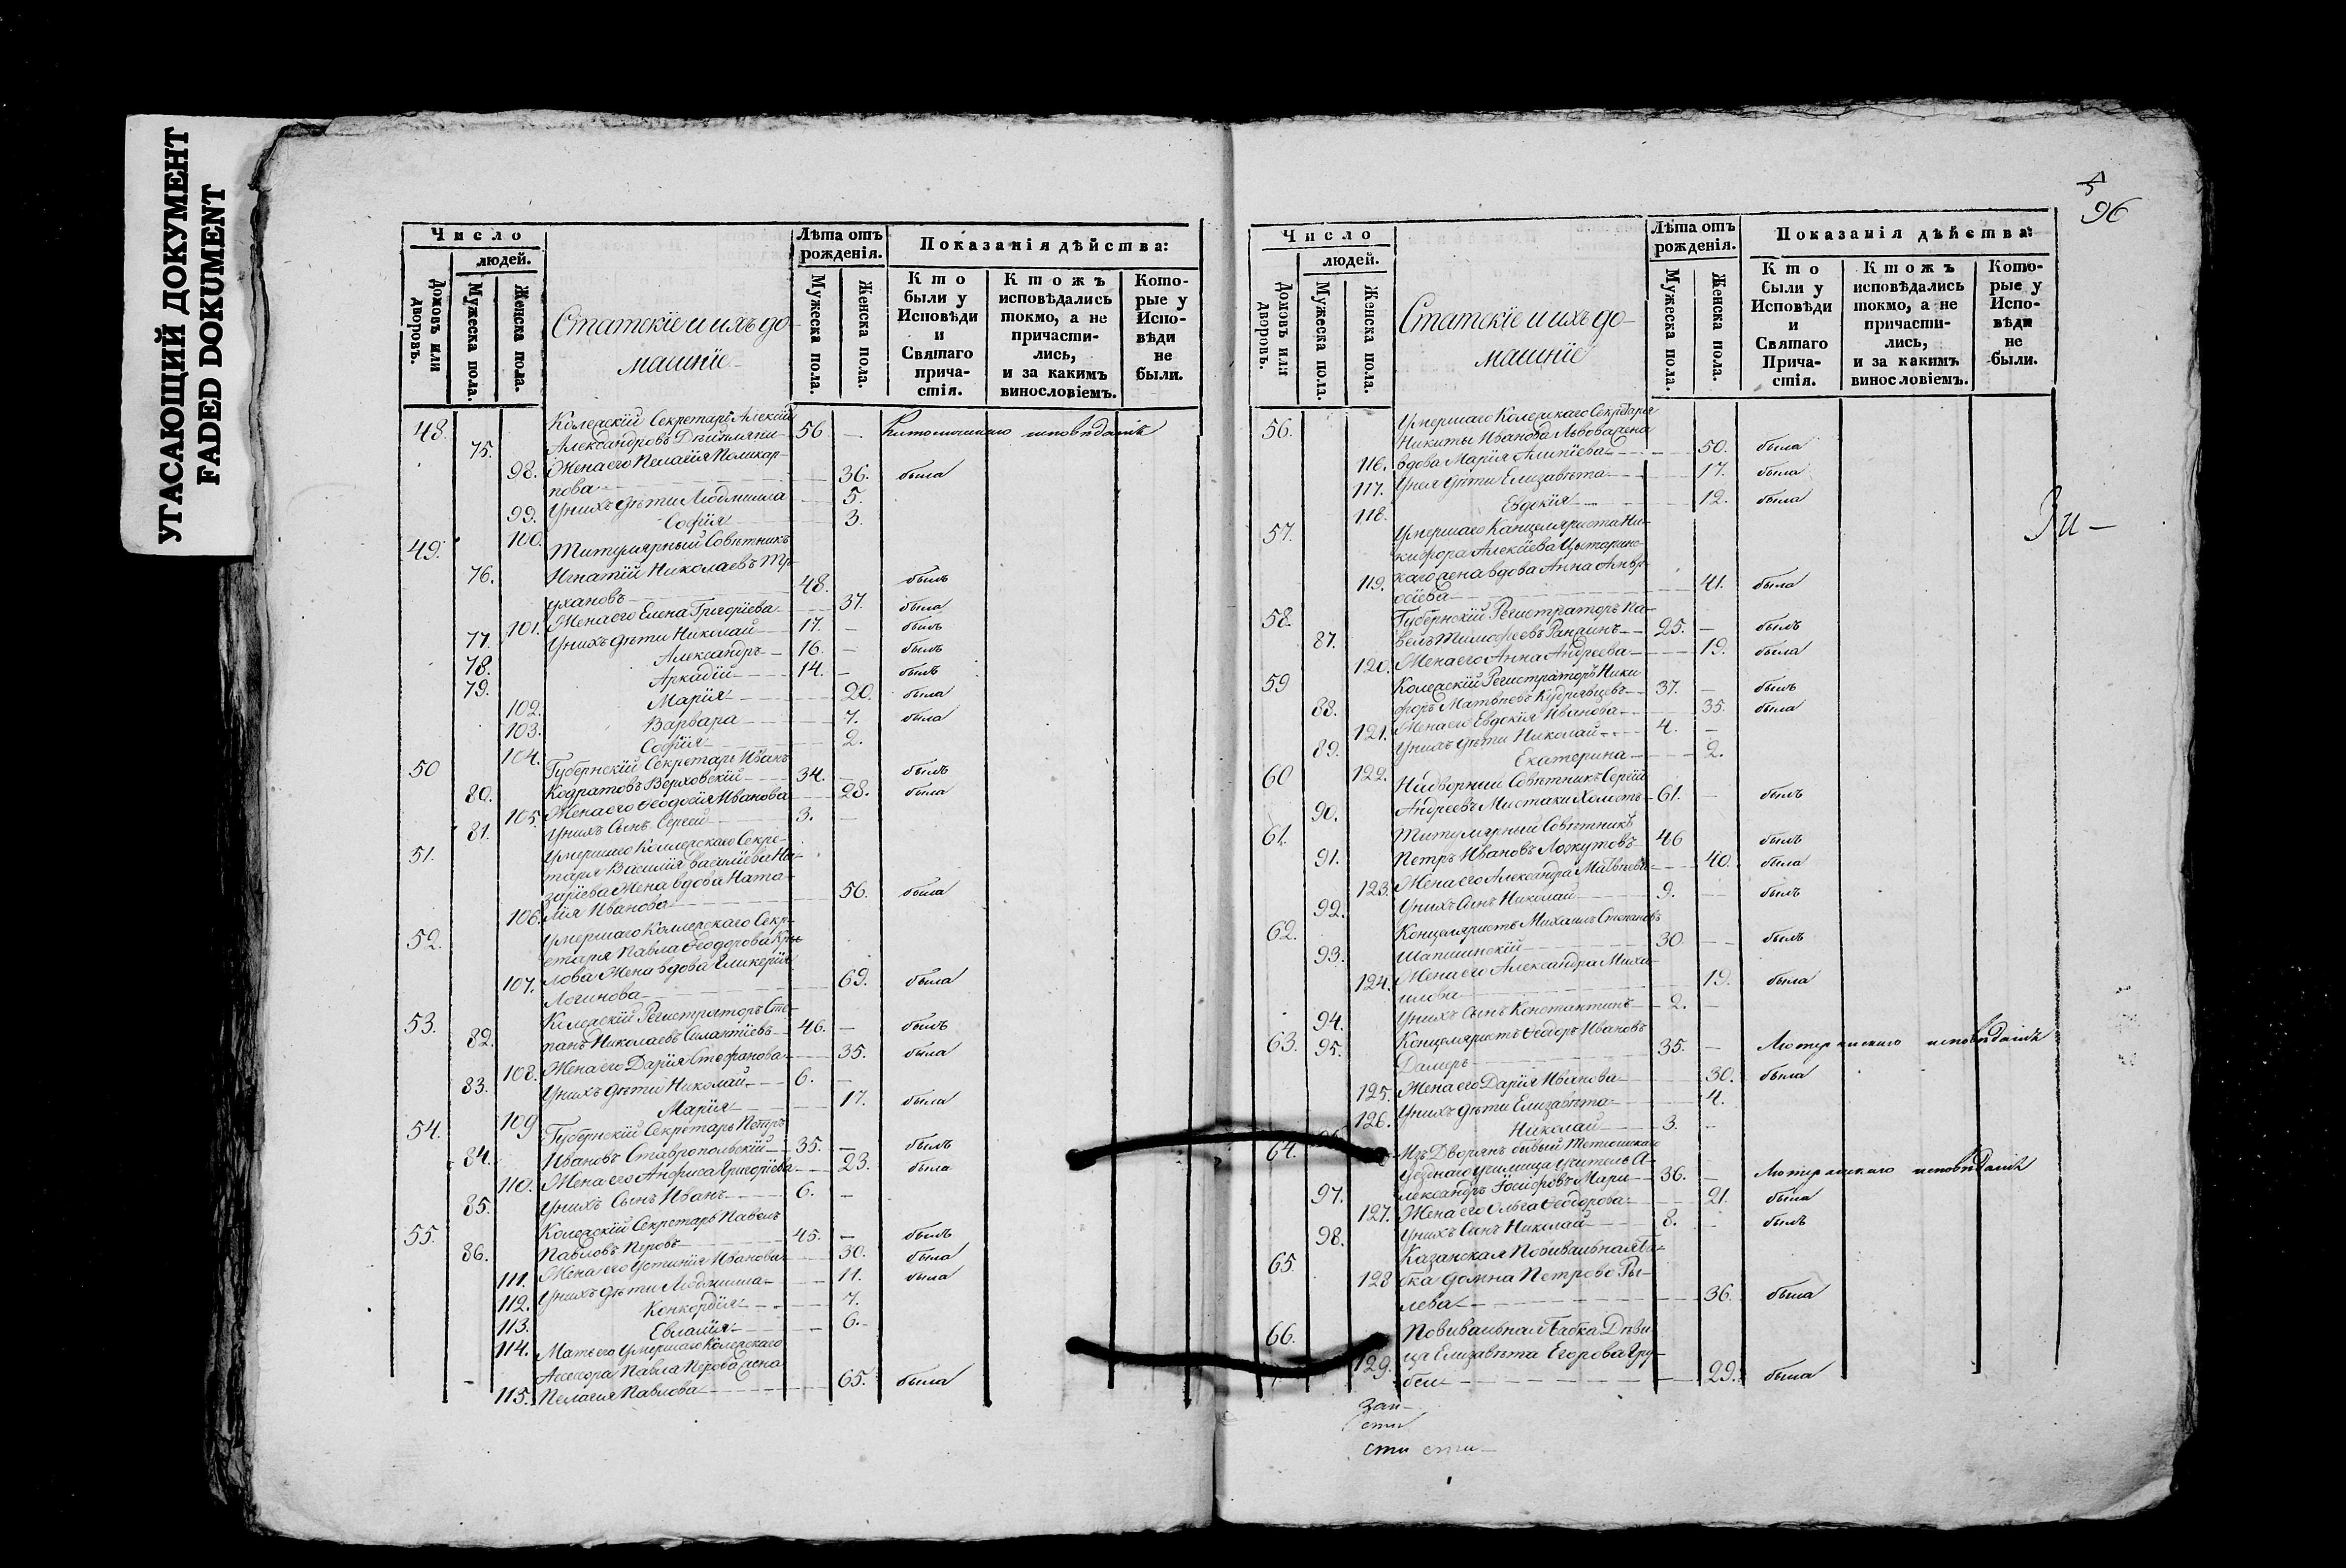 УГАСАЮЩИЙ ДОКУМЕНТ
FADED DOKUMENT
Число
людей.
Домовъ или дворовъ.
Мужеска пола.
Женска пола.
Статскіе и ихъ до-
машніе
Лѣта отъ рожденія.
Мужеска пола.
Женска пола.
Показанія дѣйства:
Кто были у Исповѣди и Святаго прича-стія.
Ктожъ исповѣдались токмо, а не причасти-лись, и за какимъ винословіемъ.
Кото-рые у Испо-вѣди не были.
48. Колежскій Секретарь Алексѣй
75. Александровъ 56 — исповѣданія
98. Жена его Пелагія Поликар-
пова 36. была
99. У нихъ дѣти Людмила 5.
100. Софія 3.
49. Титулярный Совѣтникъ
76. Игнатій Николаевъ Тр-
ухановъ 48. былъ
101. Жена его Елена Григоріева 37. была
77. У нихъ дѣти Николай 17. — былъ
78. Александръ 16. — былъ
79. Аркадій 14. — былъ
102. Марія 20. была
103. Варвара 7. была
104. Софія 2.
50 Губернскій Секретарь Иванъ
80. Кодратовъ Верховскій 34. — былъ
105. Жена его Ѳеодосія Иванова 28. была
81. У нихъ Сынъ Сергей 3. —
51. Умершаго Коллежскаго Секре-
таря Василія Василіева На-
заріева Жена вдова Ната-
106. лія Иванова 56. была
52. Умершаго Коллежскаго Секр-
етаря Павла Ѳеодорова Кры-
107. лова Жена вдова Гликерія
Логинова 69. была
53. Колежскій Регистраторъ Сте-
82. панъ Николаевъ Силантіевъ 46. — былъ
108. Жена его Дарія Стефанова 35. была
83. У нихъ дѣти Николай 6. —
109 Марія 17. была
54. Губернскій Секретарь Петръ
84. Ивановъ Ставропольскій 35. — былъ
110. Жена его Анфиса Григоріева 23. была
85. У нихъ Сынъ Иванъ 6. —
55. Колежскій Секретарь Павелъ
86. Павловъ Перовъ 45. — былъ
111. Жена его Устинія Иванова 30. была
112. У нихъ дѣти Людмила 11. была
113. Конкордія 7.
114. Евлалія 6.
Мать его Умершаго Колежскаго
Асессора Павла Перова жена
115. Пелагія Павлова 65. была
5
96
Число
людей.
Домовъ или дворовъ.
Мужеска пола.
Женска пола.
Статскіе и ихъ до-
машніе
Лѣта отъ рожденія.
Мужеска пола.
Женска пола.
Показанія дѣйства:
Кто были у Исповѣди и Святаго Прича-стія.
Ктожъ исповѣдались токмо, а не причасти-лись, и за какимъ винословіемъ.
Кото-рые у Испо-вѣди не были.
56. Умершаго Колежскаго Секретаря
Никиты Иванова Львова жена
116. вдова Марія Алипіева 50. была
117. У нея дѣти Елизавѣта 17. была
118. Евдокія 12. была
57. Умершаго Канцеляриста Ни-
кифора Алексіева
119. жена вдова Анна Амвр-
осіева 41. была
58. Губернскій Регистраторъ Па-
87. велъ Тимофеевъ 25. — былъ
120. Жена его Анна Андреева 19. была
59 Колежскій Регистраторъ Ники
88. форъ Матвѣевъ Кудрявцевъ 37. — былъ
121. Жена его Евдокія Иванова 35. была
89. У нихъ дѣти Николай 4. —
122. Екатерина 2.
60 Надворный Совѣтникъ Сергѣй
90. Андреевъ Мистаки Холостъ 61. — былъ
61. Титулярный Совѣтникъ
91. Петръ Ивановъ 46 былъ
123. Жена его Александра Матвѣева 40. была
92. У нихъ Сынъ Николай 9. — былъ
62. Концеляристъ Михаилъ Степановъ
93. Шапшинскій 30. — былъ
124. Жена его Александра Миха-
илова 19. была
94. У нихъ Сынъ Константинъ 2. —
63. 95. Концеляристъ Ѳеодоръ Ивановъ
35. — Лютеранскаго исповѣданія
125. Жена его Дарія Иванова 30. была
126. У нихъ дѣти Елизавѣта 4.
Николай 3. —
64. Изъ Дворянъ бывый Тетюшскаго
Уѣзднаго училища учитель А-
97. лександръ Іосифовъ Мари 36. — Лютеранскаго исповѣданія
127. Жена его Ольга Ѳеодорова 21. была
98. У нихъ Сынъ Николай 8. — былъ
65. Казанская Повивальная Ба-
128 бка Домна Петрова Ры-
лева 36. была
66. Повивальная Бабка Дѣви
129. ца Елизавѣта Егорова Гру-
бси 29. была
Зи —
зап
сти
сти сти